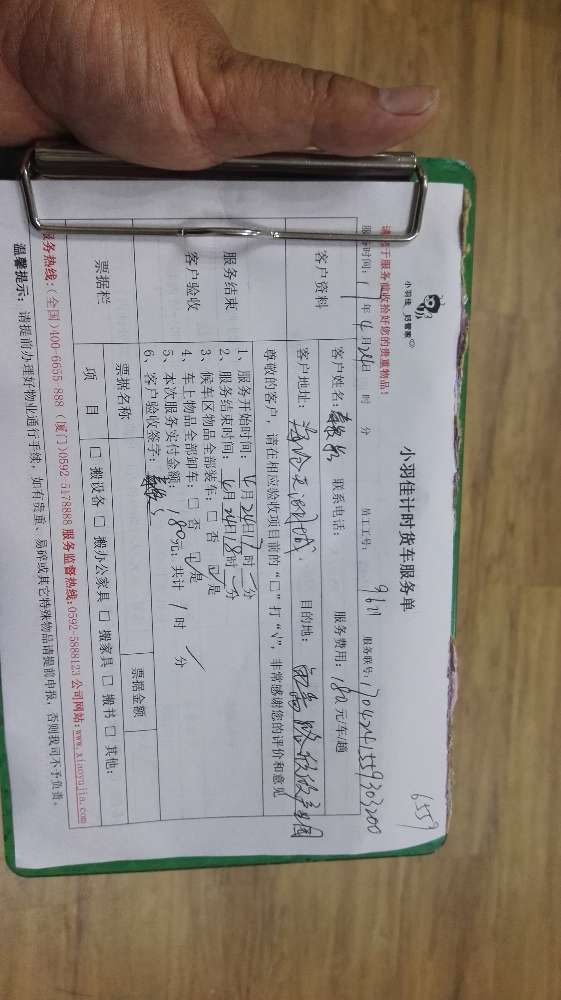 6559
小羽佳 好管家
小羽佳计时货车服务单
请您于服务前收拾好您的贵重物品！
服务时间：17年4月24日 时 分 员工工号：9621 服务联号：1704241559303200
客户资料
客户姓名： 联系电话： 服务费用：180元/车/趟
客户地址： 目的地：
尊敬的客户，请在相应验收项目前的“□”打“√”，非常感谢您的评价和意见
服务结束
客户验收
1、服务开始时间：4月24日17时 分
2、服务结束时间：4月24日18时 分
3、候车区物品全部装车：□ 否 ☑ 是
4、车上物品全部卸车：□ 否 ☑ 是
5、本次服务实付金额：180元；共计 1 时 分
6、客户验收签字：
票据栏
票据名称 票据金额
项 目 □ 搬设备 □ 搬办公家具 □ 搬家具 □ 搬书 □ 其他：
服务热线：(全国)400-6655-888 (厦门)0592-5178888 服务监督热线：0592-5888123 公司网站：www.xiaoyujia.com
温馨提示：请提前办理好物业通行手续，如有贵重、易碎或其它特殊物品请提前申报，否则我司不予负责。